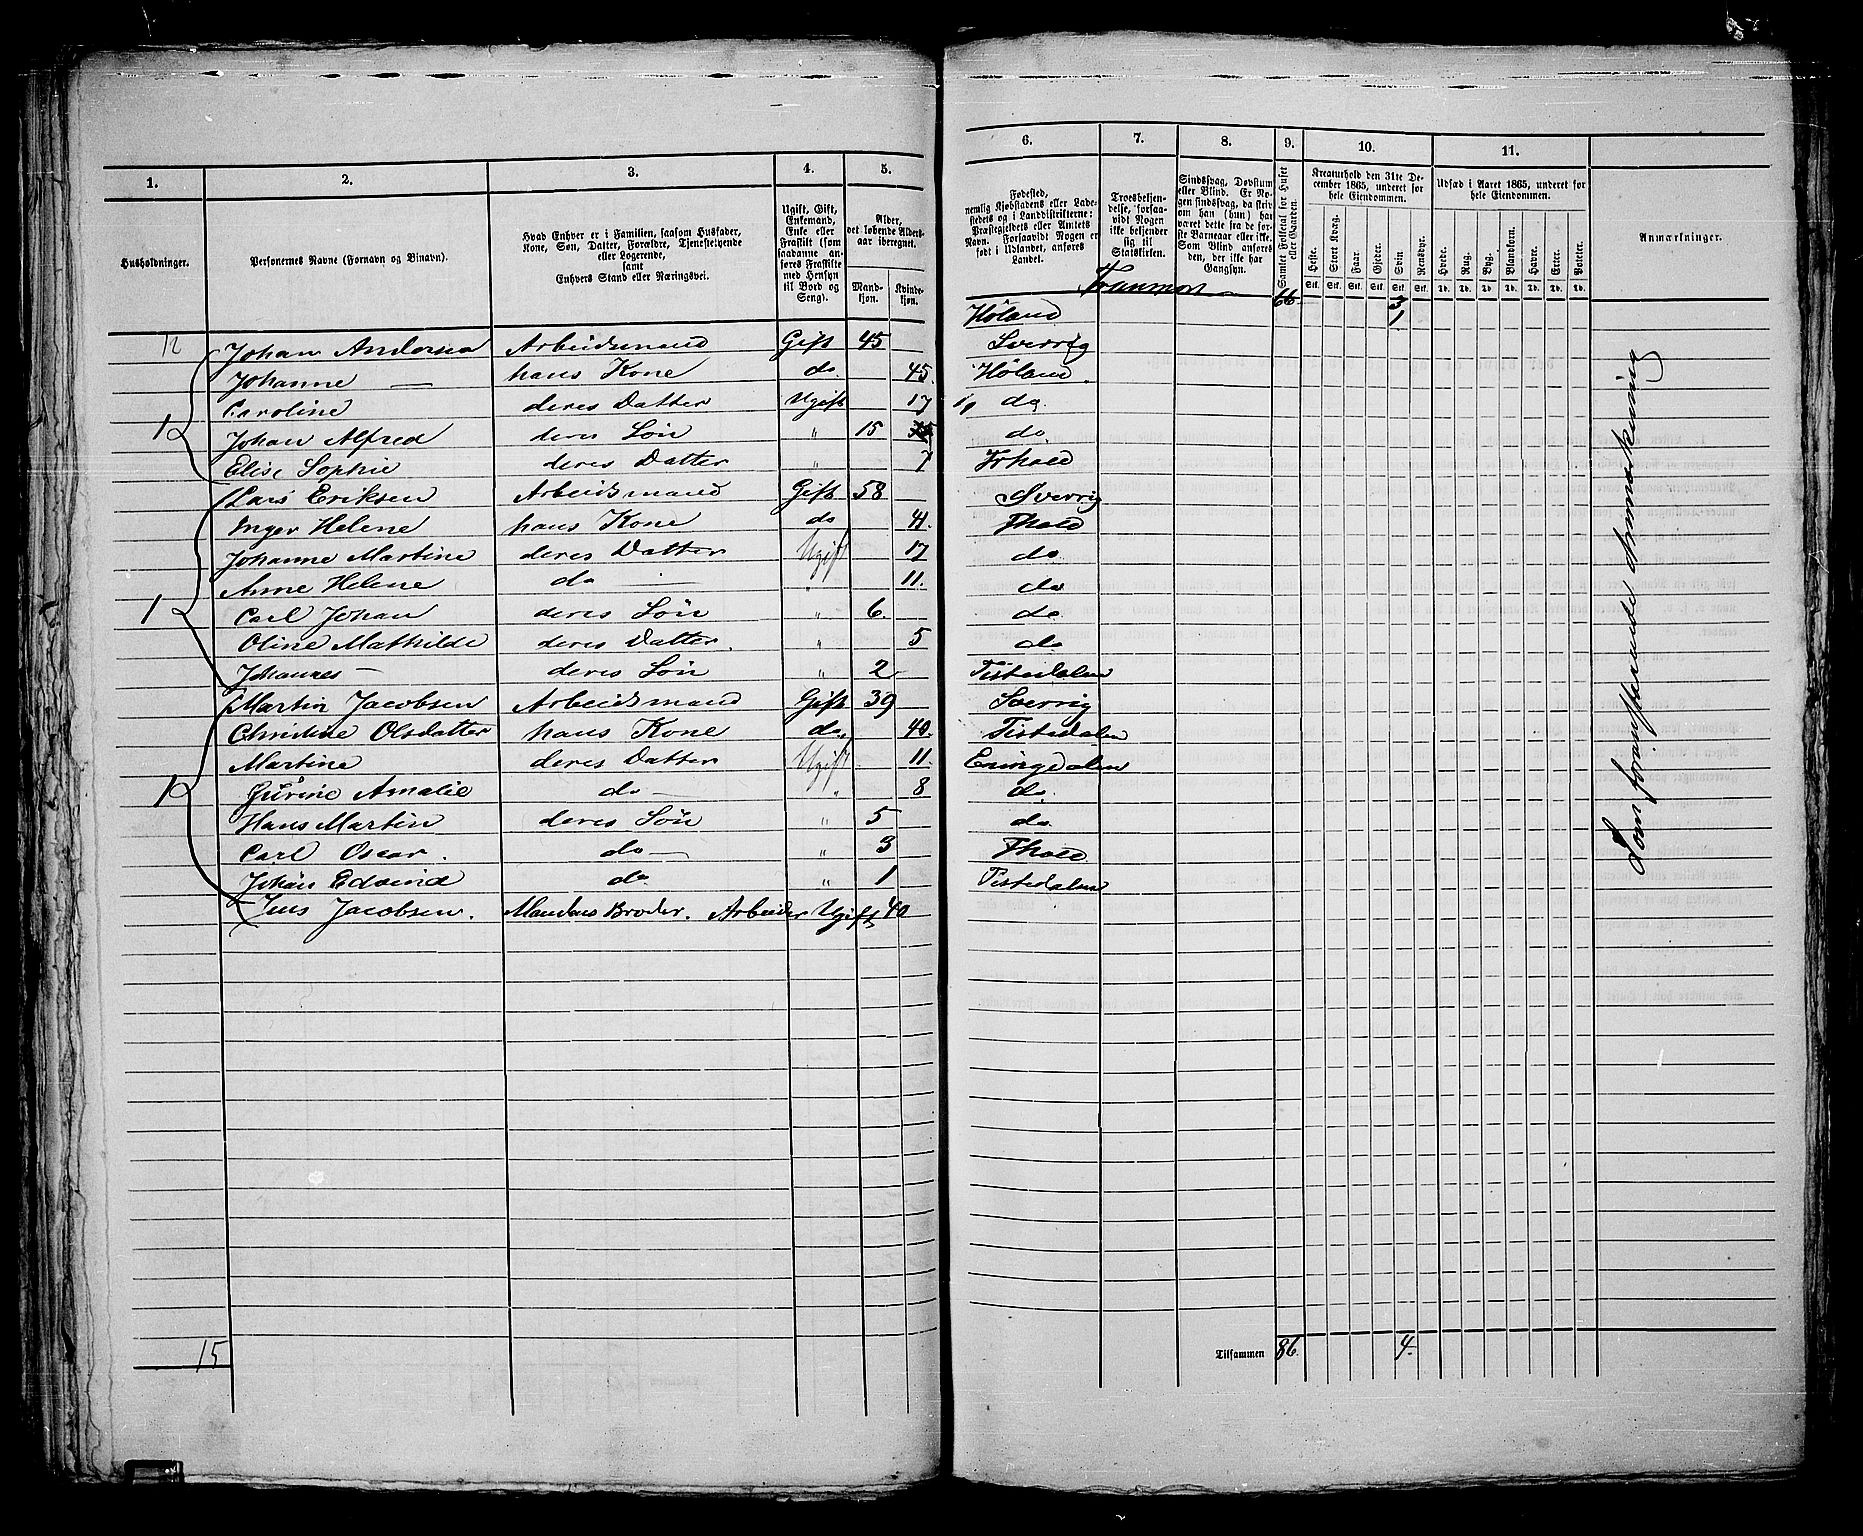 1. 2. 3. 4. 5. 6. 7. 8. 9. 10. 11.
Husholdninger.
Personernes Navne (Fornavn og Binavn).
Hvad Enhver er i Familien, saasom Husfader,
Kone, Søn, Datter, Forældre, Tjenestetyende
eller Logerende,
samt
Enhvers Stand eller Næringsvei.
Ugift, Gift,
Enkemand,
Enke eller
Fraskilt (som
saadanne an-
føres Fraskilte
med Hensyn
til Bord og
Seng).
Alder,
det løbende Alders-
aar iberegnet.
Mand-
kjøn.
Kvinde-
kjøn.
Fødested,
nemlig Kjøbstadens eller Lade-
stedets og i Landdistrikterne:
Præstegjeldets eller Amtets
Navn. Forsaavidt Nogen er
født i Udlandet, anføres
Landet.
Troesbekjen-
delse, forsaa-
vidt Nogen
ikke bekjender
sig til
Statskirken.
Sindssvag, Døvstum
eller Blind. Er No-
gen sindssvag, da skriv
om han (hun) har
været dette fra de før-
ste Barneaar eller ikke.
Som Blind anføres
den, der ikke har
Gangsyn.
Samlet Folketal for Huset
eller Gaarden.
Kreaturhold den 31te De-
cember 1865, underet for
hele Eiendommen.
Heste. Stort Kvæg. Faar. Gjeder. Svin Rensdyr.
Stk. Stk. Stk. Stk. Stk. Stk.
Udsæd i Aaret 1865, underet for
hele Eiendommen.
Hvede. Rug. Byg. Blandkorn. Havre. Erter. Poteter.
Td. Td. Td. Td. Td. Td. Td.
Anmærkninger.
66 3
12 Johan Andersen Arbeidsmand Gift 45 Høland 1
Johanne — hans Kone do. 45. Sverrig
Caroline deres Datter Ugift 17 Høland
1 Johan Alfred deres Søn " 15 do
Elise Sophie deres Datter " 7 do
Lars Eriksen Arbeidsmand Gift 58
Inger Helene hans Kone do 41. Sverrig
Johanne Martine deres Datter Ugift 17 Fhald
Anne Helene do — " 11. do
1 Carl Johan deres Søn " 6. do
Oline Mathilde deres Datter. " 5 do
Johannes — deres Søn " 2 do
Martin Jacobsen Arbeidsmand Gift 39 Tistedalen
Christine Olsdatter hans Kone do. 40. Sverrig
Martine deres Datter Ugift 11. Tistedalen
1 Jurine Amalie do — " 8 Eningdalen
Hans Martin deres Søn " 5 do.
Carl Oscar. do — " 3 do.
Johan Edvind do. " 1 Fhald
Jens Jacobsen. Mandens Broder. Arbeider Ugift 40 Tistedalen
Som foranstaaende Anmærkning
15
Tilsammen 86. 4.